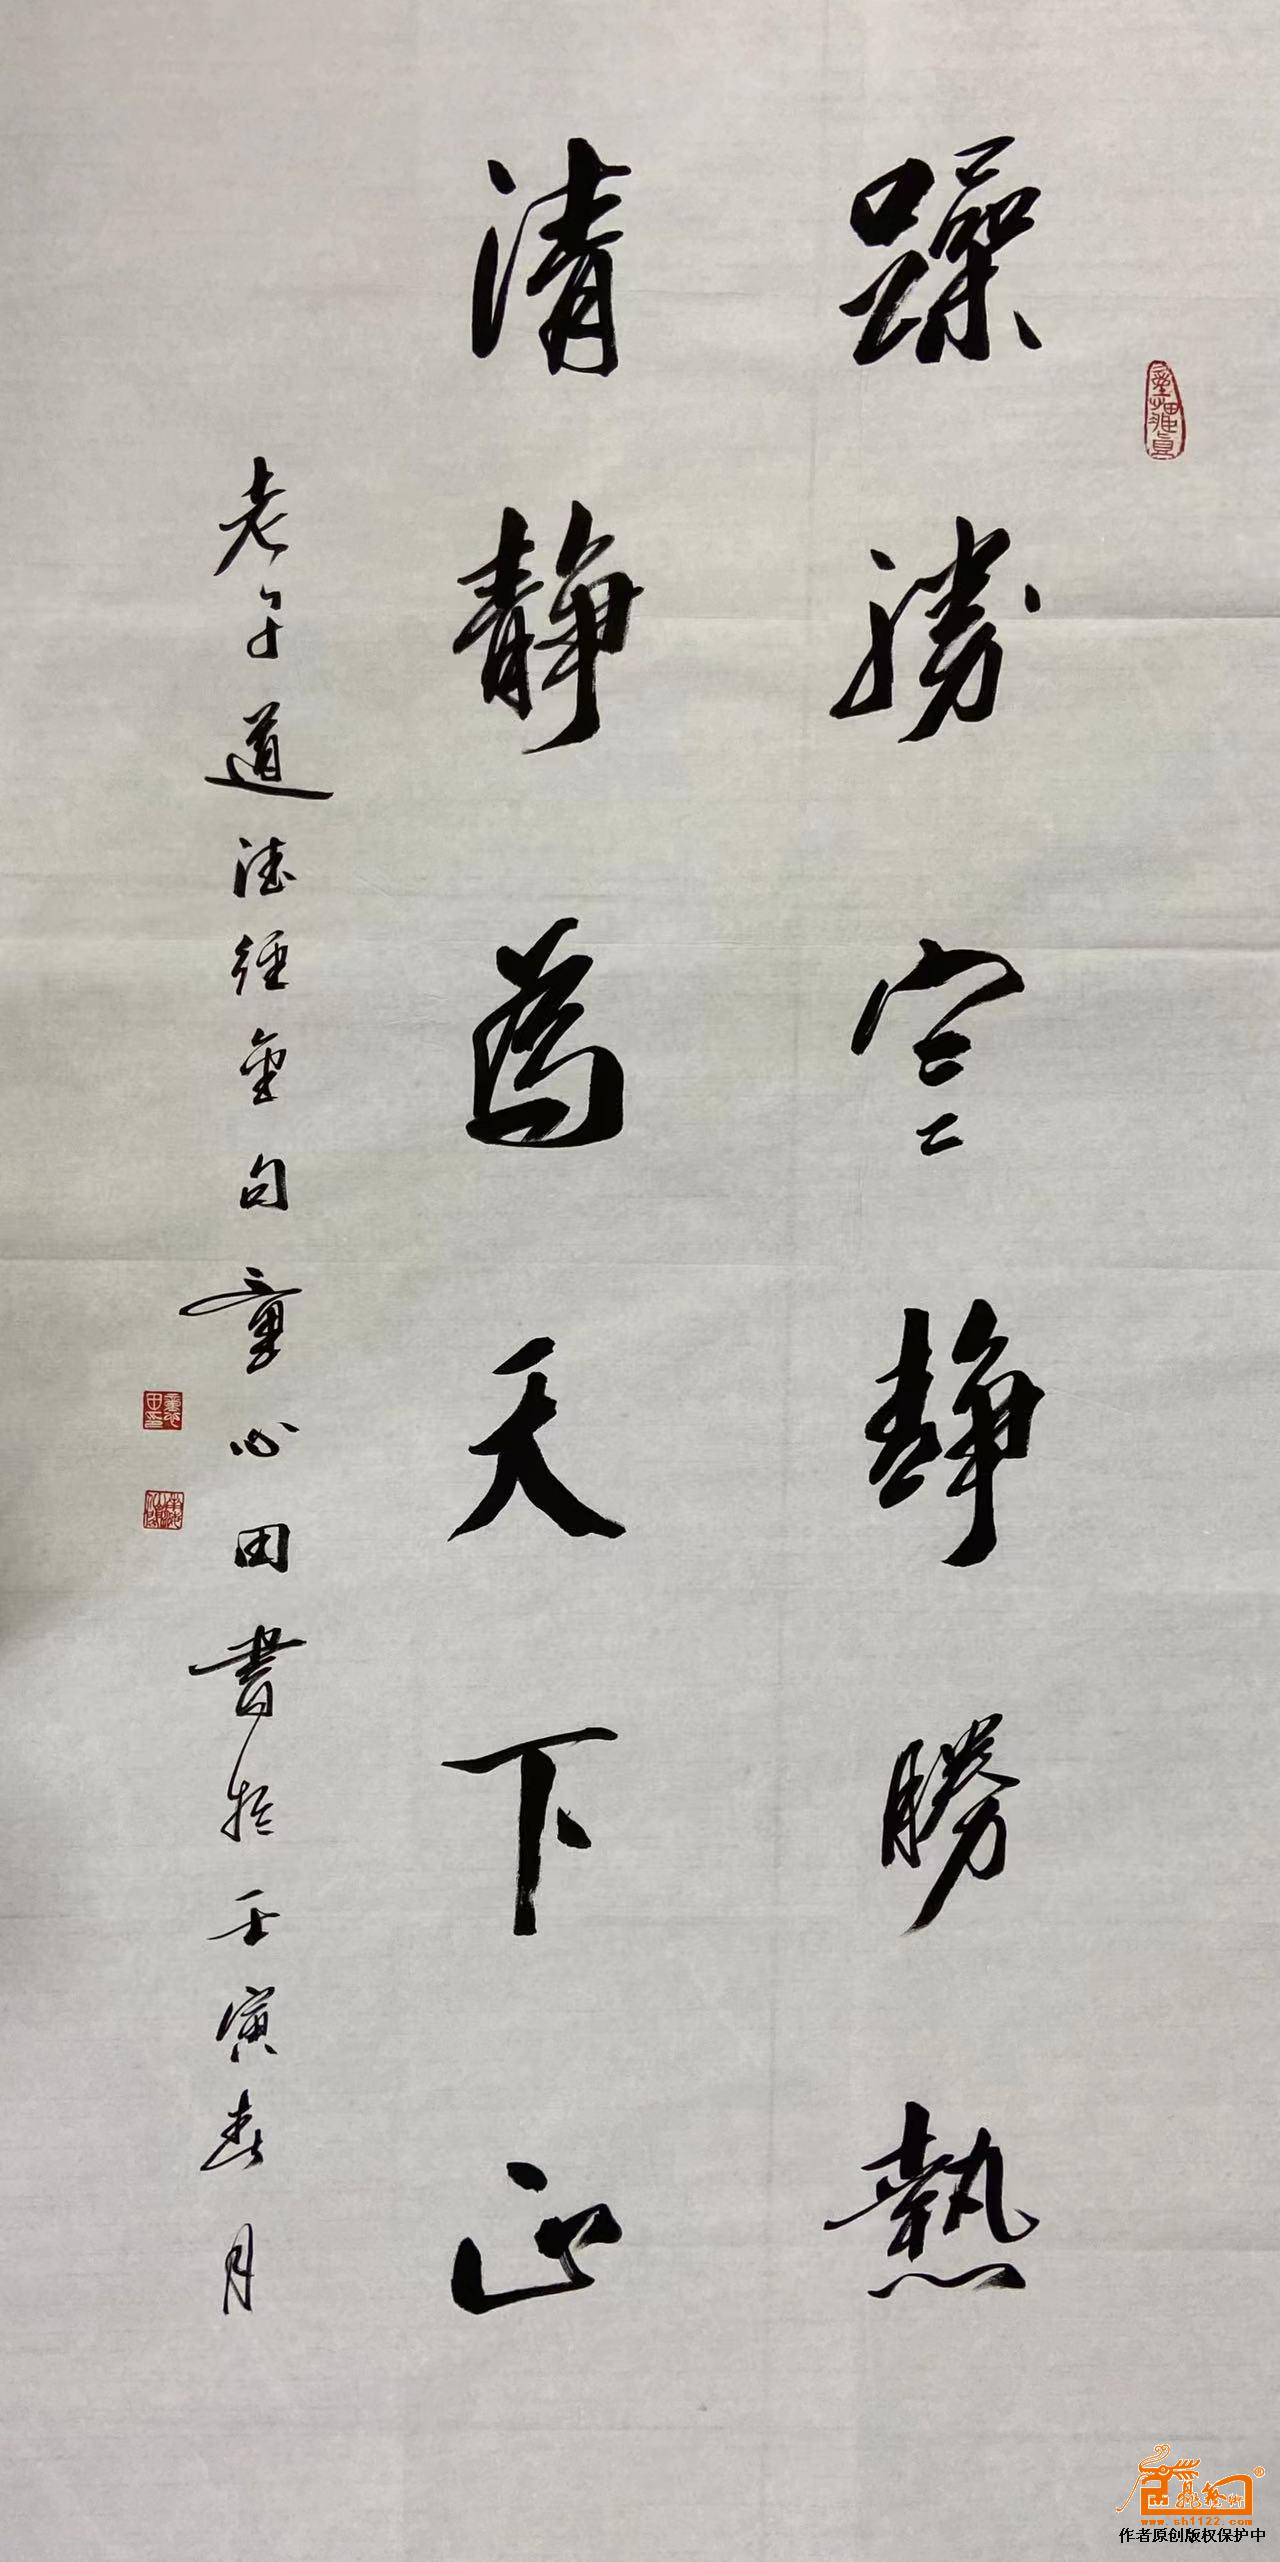 躁勝寒静勝熱
清静為天下正
老子道德經金句童心田書於壬寅春月
www.sh1122.com
作者原创版权保护中